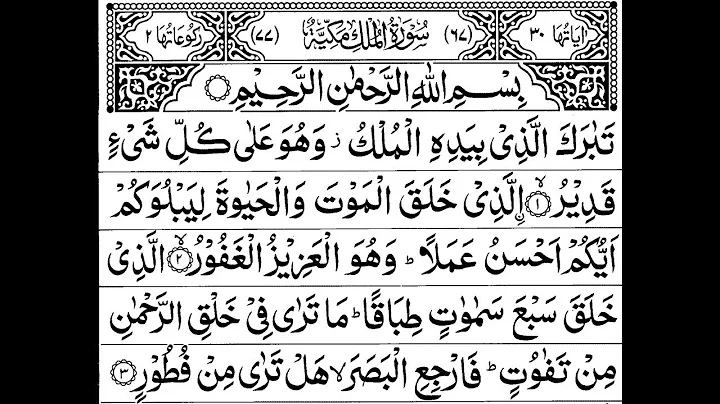 اٰیَاتُهَا ٣٠ (٦٧) سُوْرَةُ الْمُلْكِ مَكِّیَّةٌ (٧٧) رُكُوْعَاتُهَا ٢
بِسْمِ اللّٰهِ الرَّحْمٰنِ الرَّحِیْمِ
تَبٰرَكَ الَّذِیْ بِیَدِهِ الْمُلْكُ ز وَهُوَ عَلٰی كُلِّ شَیْءٍ
قَدِیْرُ ۙ﴿١﴾ اِۨلَّذِیْ خَلَقَ الْمَوْتَ وَالْحَیٰوةَ لِیَبْلُوَكُمْ
اَیُّكُمْ اَحْسَنُ عَمَلًا ؕ وَهُوَ الْعَزِیْزُ الْغَفُوْرُ ۙ﴿٢﴾ الَّذِیْ
خَلَقَ سَبْعَ سَمٰوٰتٍ طِبَاقًا ؕ مَا تَرٰی فِیْ خَلْقِ الرَّحْمٰنِ
مِنْ تَفٰوُتٍ ؕ فَارْجِعِ الْبَصَرَ ۙ هَلْ تَرٰی مِنْ فُطُوْرٍ ﴿٣﴾